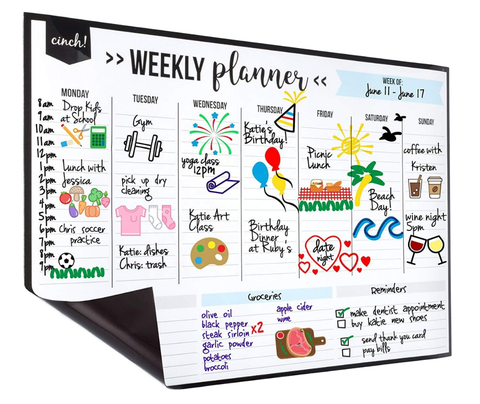 cinch!
>> WEEKLY planner <<
WEEK OF:
June 11 - June 17
MONDAY
TUESDAY
WEDNESDAY
THURSDAY
FRIDAY
SATURDAY
SUNDAY
8am
9am
10am
11am
12pm
1pm
2pm
3pm
4pm
5pm
6pm
7pm
8pm
9pm
Drop Kids
at School
Lunch with
Jessica
Chris soccer
practice
Gym
pick up dry
cleaning
Katie: dishes
Chris: trash
yoga class
12pm
Katie Art
Class
Katie's
Birthday!
Birthday
Dinner
at Ruby's
Picnic
Lunch
date
night
Beach
Day!
coffee with
Kristen
wine night
5pm
Groceries
olive oil
black pepper
steak sirloin x2
garlic powder
potatoes
broccoli
apple cider
wine
Reminders
make dentist appointment
buy katie new shoes
send thank you card
pay bills